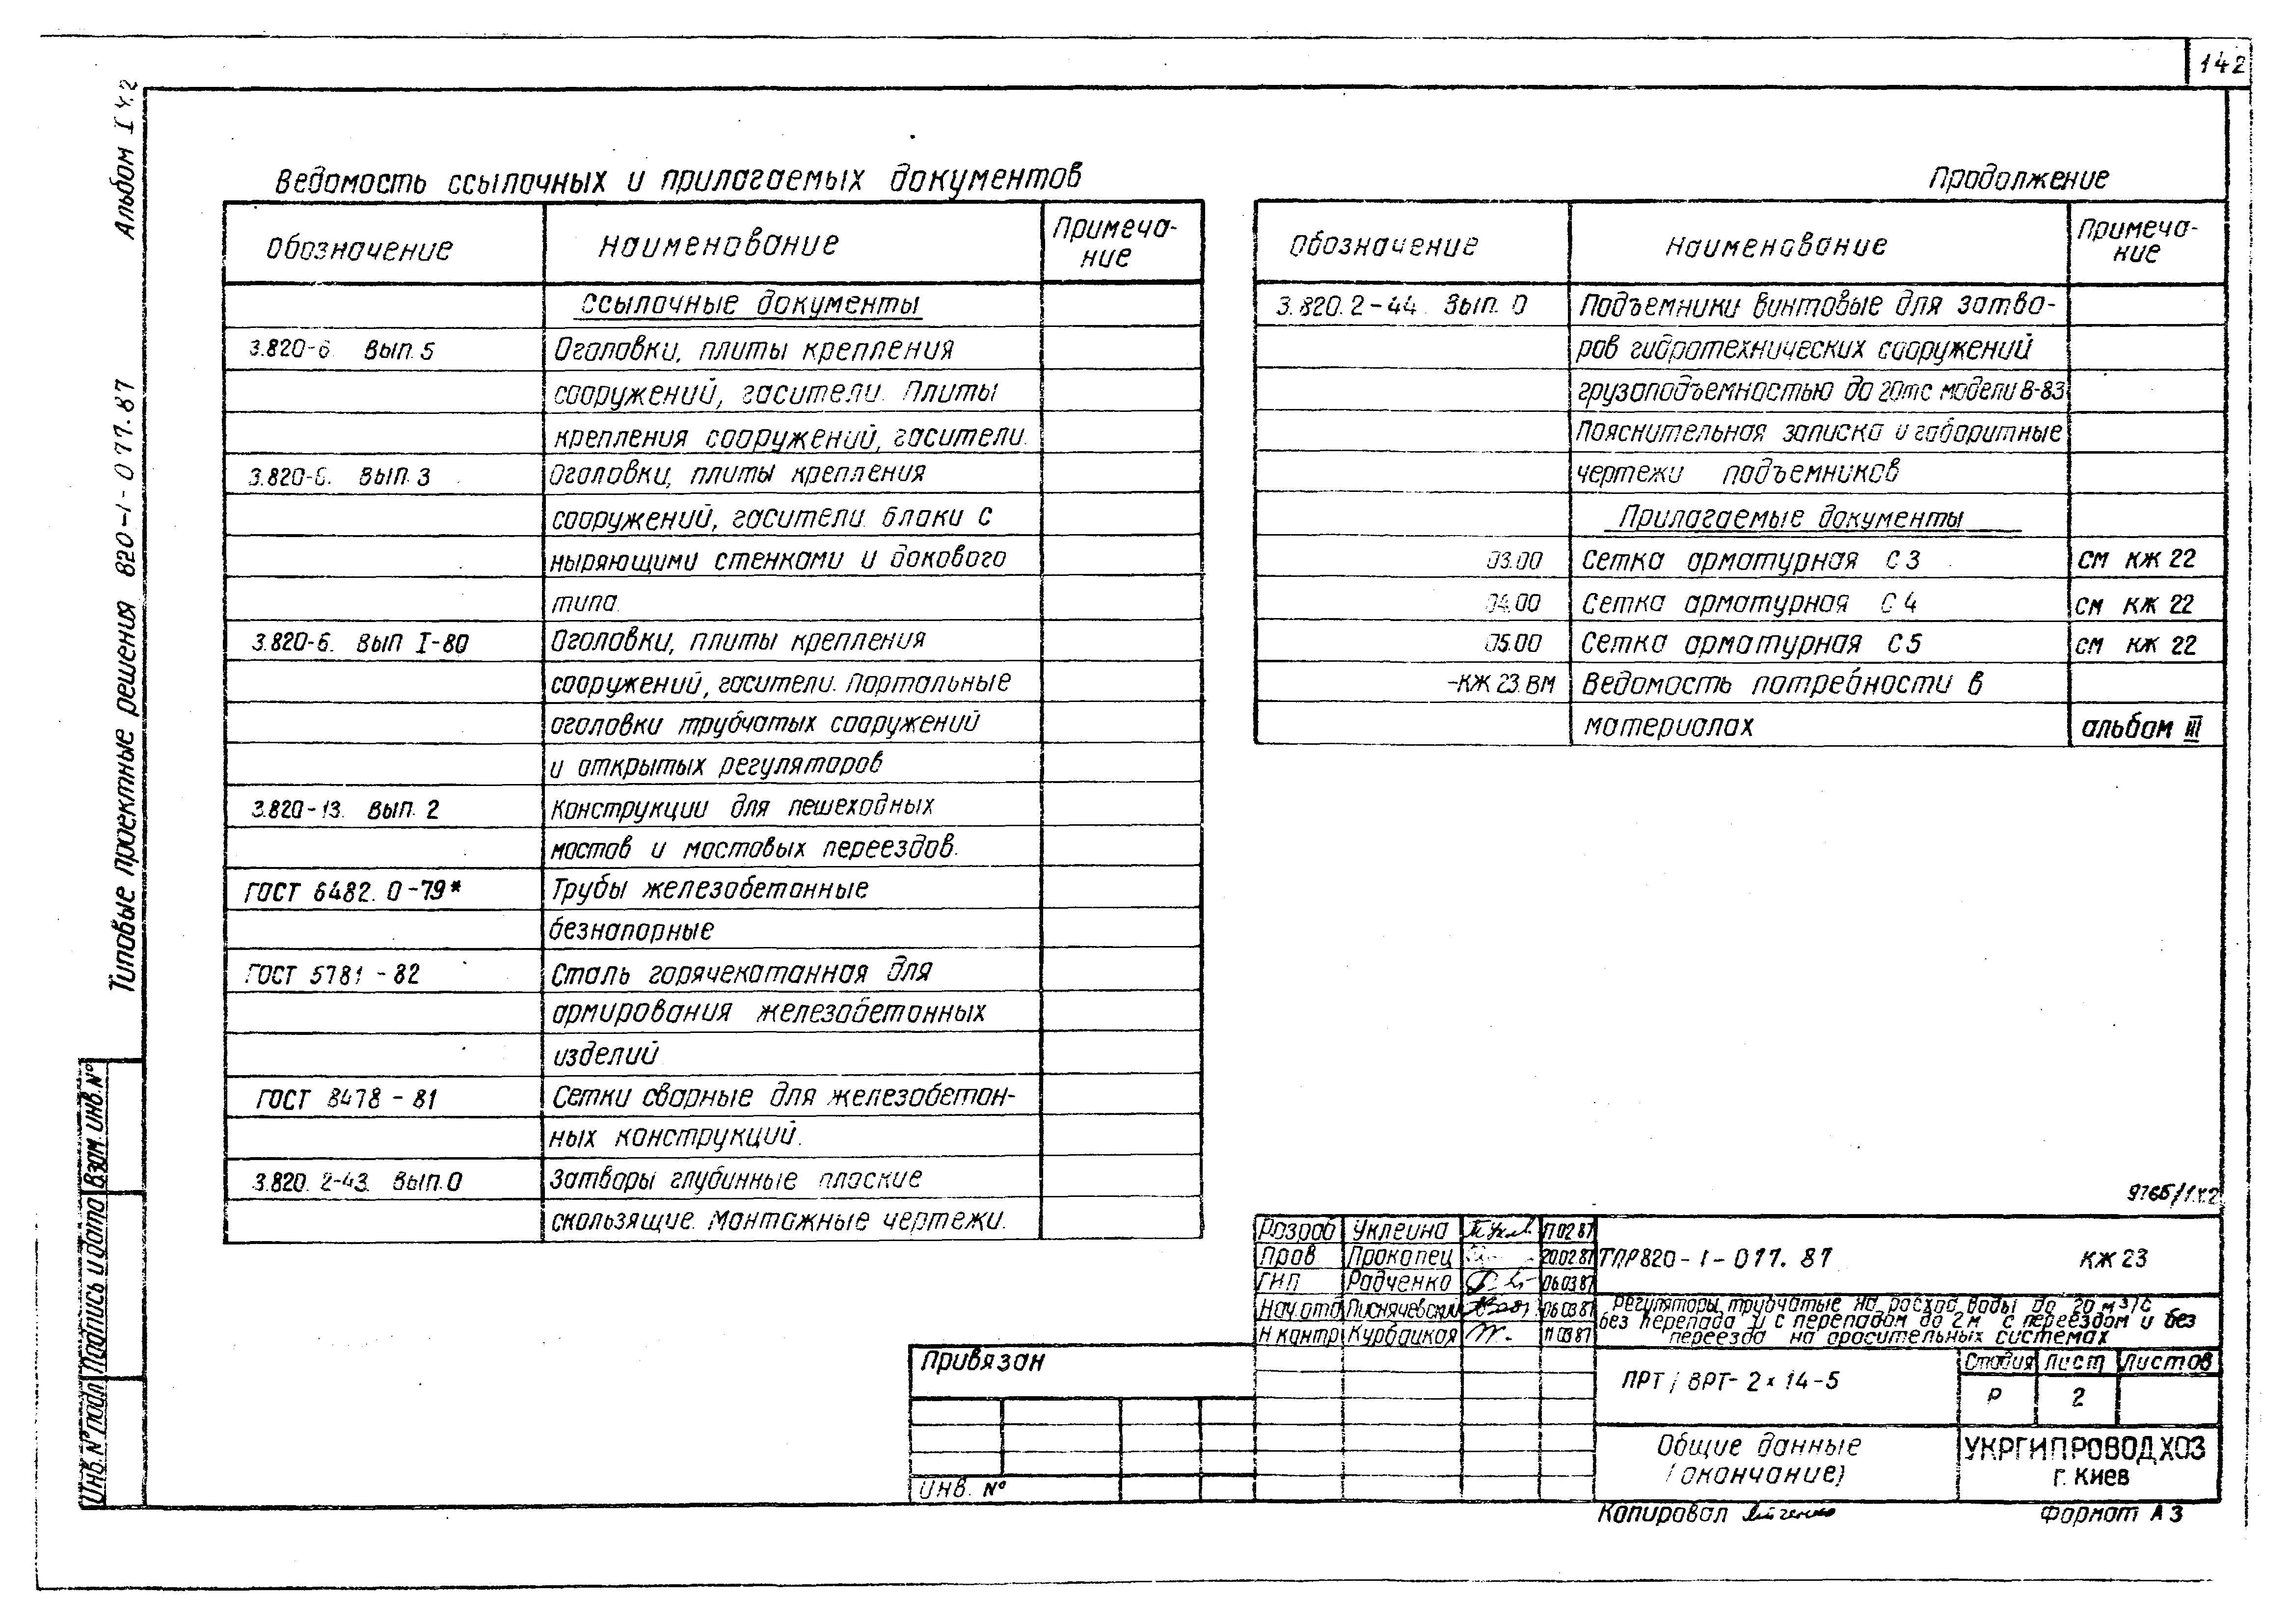 142
Альбом I ч.2
Типовые проектные решения 820-1-077.87
Взам. инв. №
Подпись и дата
Инв. № подл
Ведомость ссылочных и прилагаемых документов
Обозначение Наименование Примеча-
ние
Ссылочные документы
3.820-6 Вып. 5 Оголовки, плиты крепления
сооружений, гасители. Плиты
крепления сооружений, гасители.
3.820-6. Вып. 3 Оголовки, плиты крепления
сооружений, гасители. Блоки с
ныряющими стенками и докового
типа.
3.820-6. Вып I-80 Оголовки, плиты крепления
сооружений, гасители. Портальные
оголовки трубчатых сооружений
и открытых регуляторов
3.820-13. Вып. 2 Конструкции для пешеходных
мостов и мостовых переездов.
ГОСТ 6482.0-79* Трубы железобетонные
безнапорные
ГОСТ 5781-82 Сталь горячекатанная для
армирования железобетонных
изделий
ГОСТ 8478-81 Сетки сварные для железобетон-
ных конструкций.
3.820.2-43. Вып. 0 Затворы глубинные плоские
скользящие. Монтажные чертежи.
Продолжение
Обозначение Наименование Примеча-
ние
3.820.2-44 Вып. 0 Подъемники винтовые для затво-
ров гидротехнических сооружений
грузоподъемностью до 20тс модели В-83
Пояснительная записка и габаритные
чертежи подъемников
Прилагаемые документы
03.00 Сетка арматурная С3 см КЖ 22
04.00 Сетка арматурная С4 см КЖ 22
05.00 Сетка арматурная С5 см КЖ 22
-КЖ 23.ВМ Ведомость потребности в
материалах альбом III
9765/1ч.2
Разраб Уклеина 17.02.87
Пров Прокопец 20.02.87
ГИП Радченко 06.03.87
Нач отд Писнячевский 06.03.87
Н контр Курбацкая 11.03.87
ТПР820-1-077.87 КЖ 23
Регуляторы трубчатые на расход воды до 20 м³/с
без перепада и с перепадом до 2м с переездом и без
переезда на оросительных системах
ПРТ; ВРТ-2×14-5
Стадия Лист Листов
Р 2
Общие данные
(окончание)
УКРГИПРОВОДХОЗ
г. Киев
Привязан
Инв. №
Копировал
Формат А3